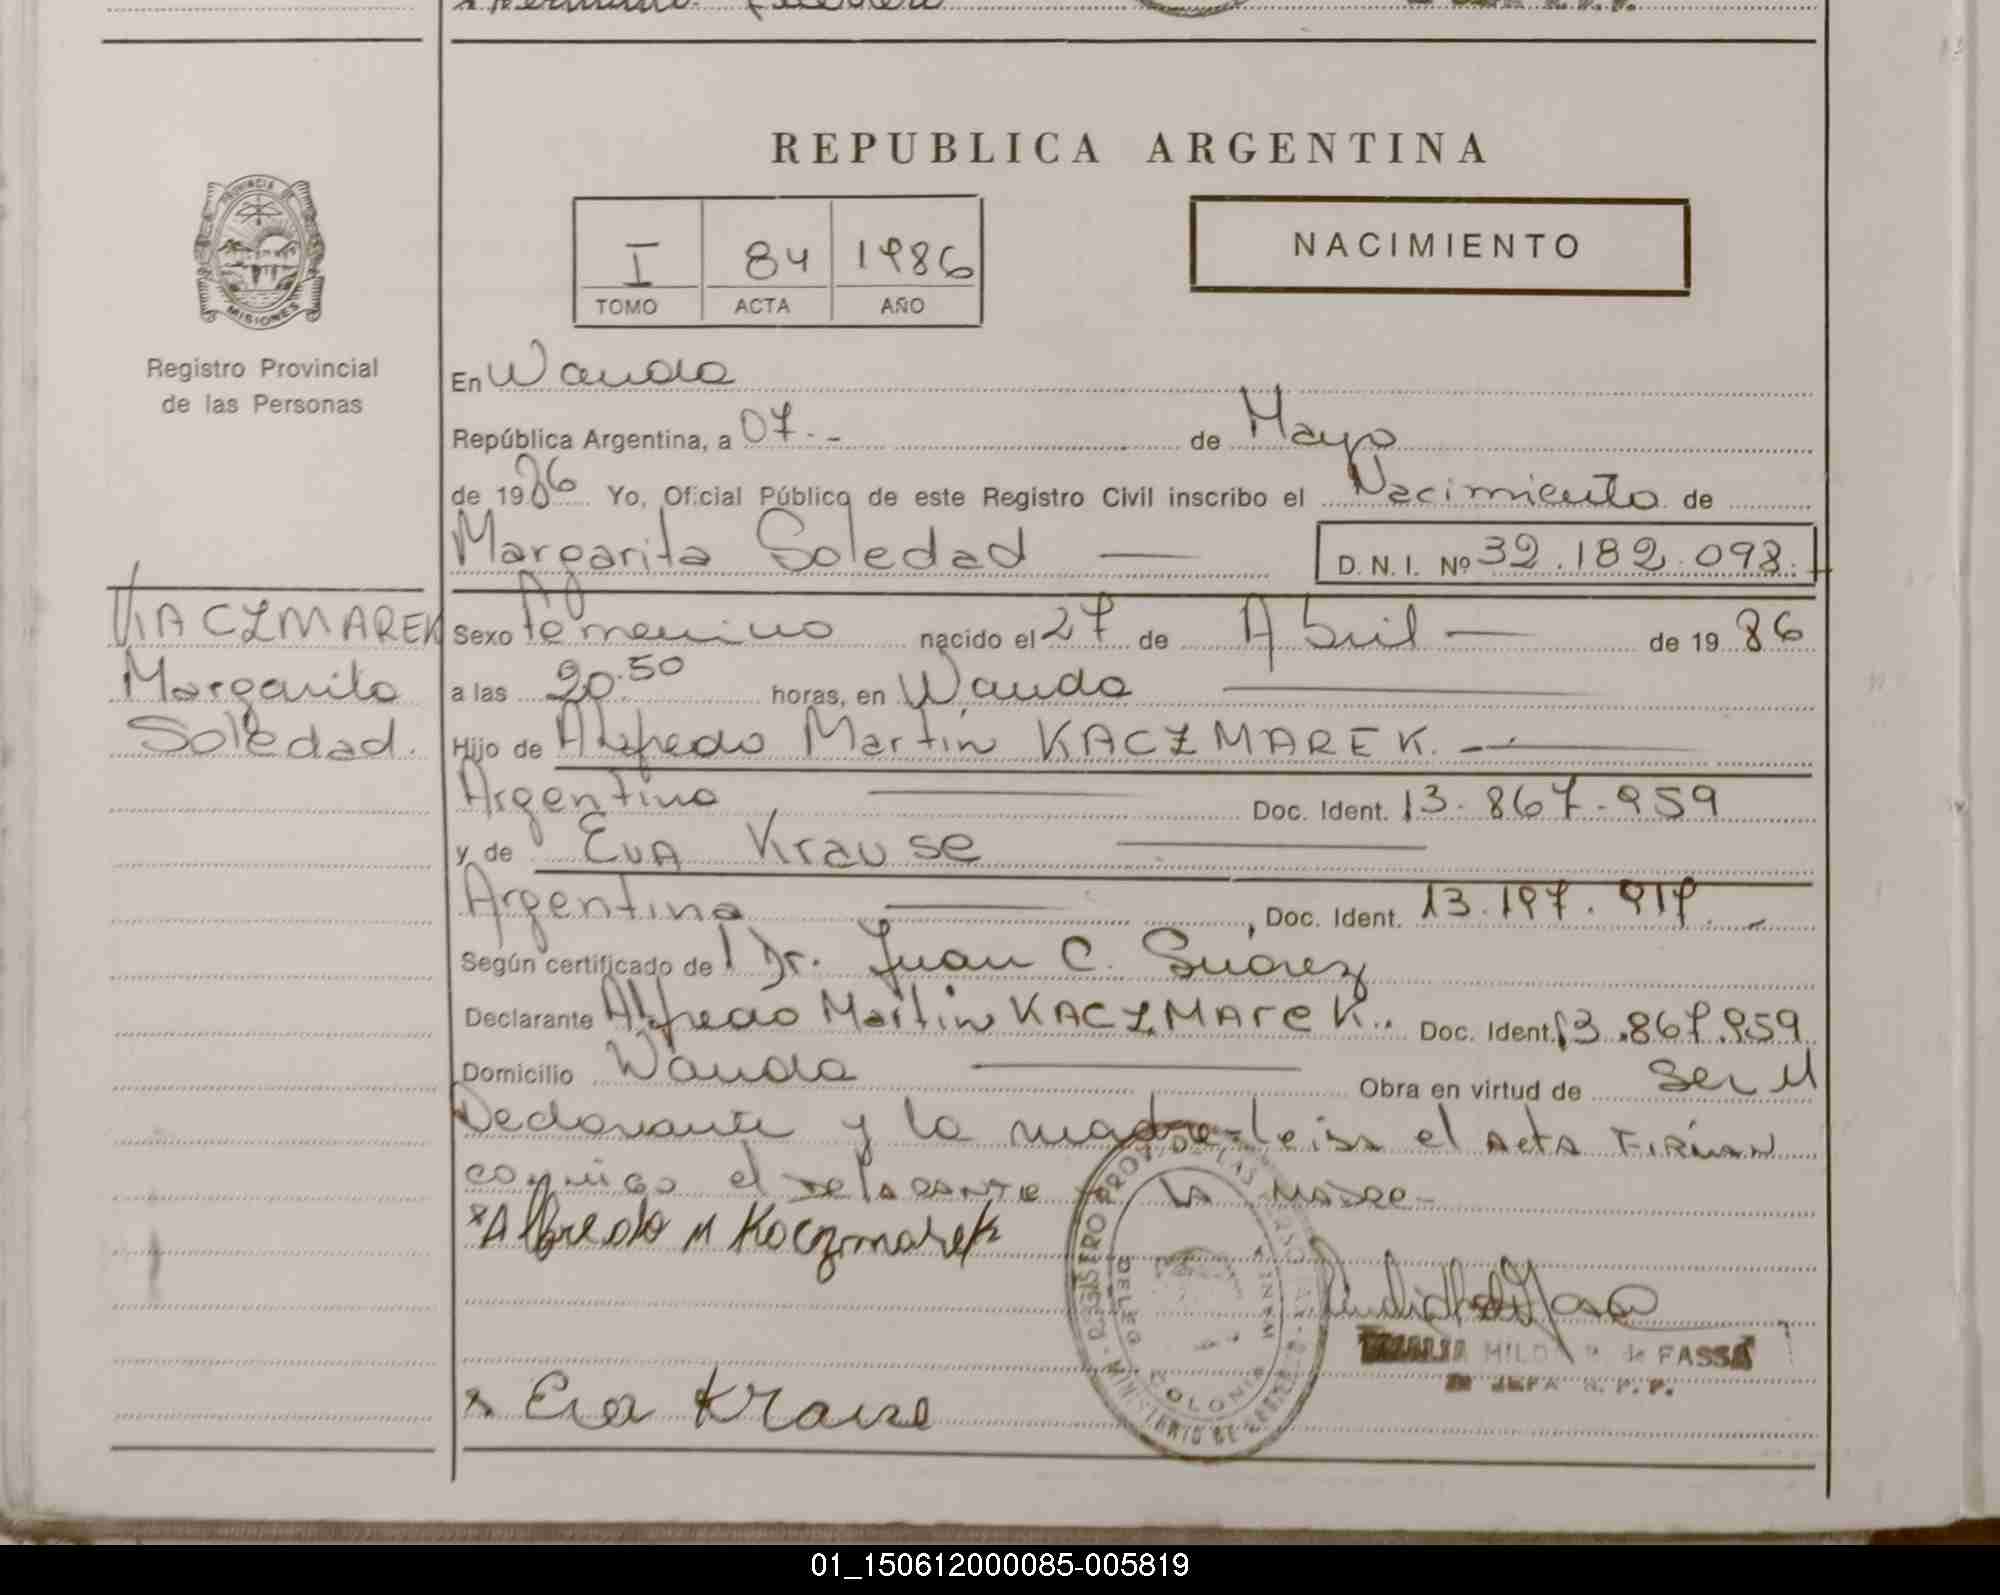 REPUBLICA ARGENTINA
PROVINCIA DE
MISIONES
Registro Provincial
de las Personas
I 84 1986
TOMO ACTA AÑO
NACIMIENTO
En Wanda
República Argentina, a 07.- de Mayo
de 1986 Yo, Oficial Público de este Registro Civil inscribo el Nacimiento de
Margarita Soledad D. N. I. Nº 32.182.098.
KACZMAREK
Margarita
Soledad.
Sexo Femenino nacido el 27 de Abril de 19 86
a las 20.50 horas, en Wanda
Hijo de Alfredo Martin KACZMAREK.
Argentino Doc. Ident. 13.867.959
y de EVA Krause
Argentina, Doc. Ident. 13.197.917.
Según certificado de Dr. Juan C. Suarez
Declarante Alfredo Martin KACZMAREK.. Doc. Ident. 13.867.959
Domicilio Wanda Obra en virtud de Ser el
Declarante y la madre- Leida el Acta FIRMAN
conmigo el declarante LA MADRE-
x Alfredo M Kaczmarek
x Eva Krause
HILDA de FASSA
JEFA R. P. P.
DELEG COLONIA WANDA
01_150612000085-005819